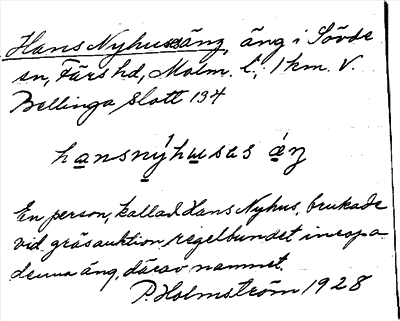 Hans Nyhusäng, äng i Sövde
sn, Färs hd, Malm. l., 1 km. V.
Bellinga slott 194
hansnýhuses áŋ
En person, kallad Hans Nyhus, brukade
vid gräsauktion regelbundet inropa
denna äng, därav namnet.
P. Holmström 1928